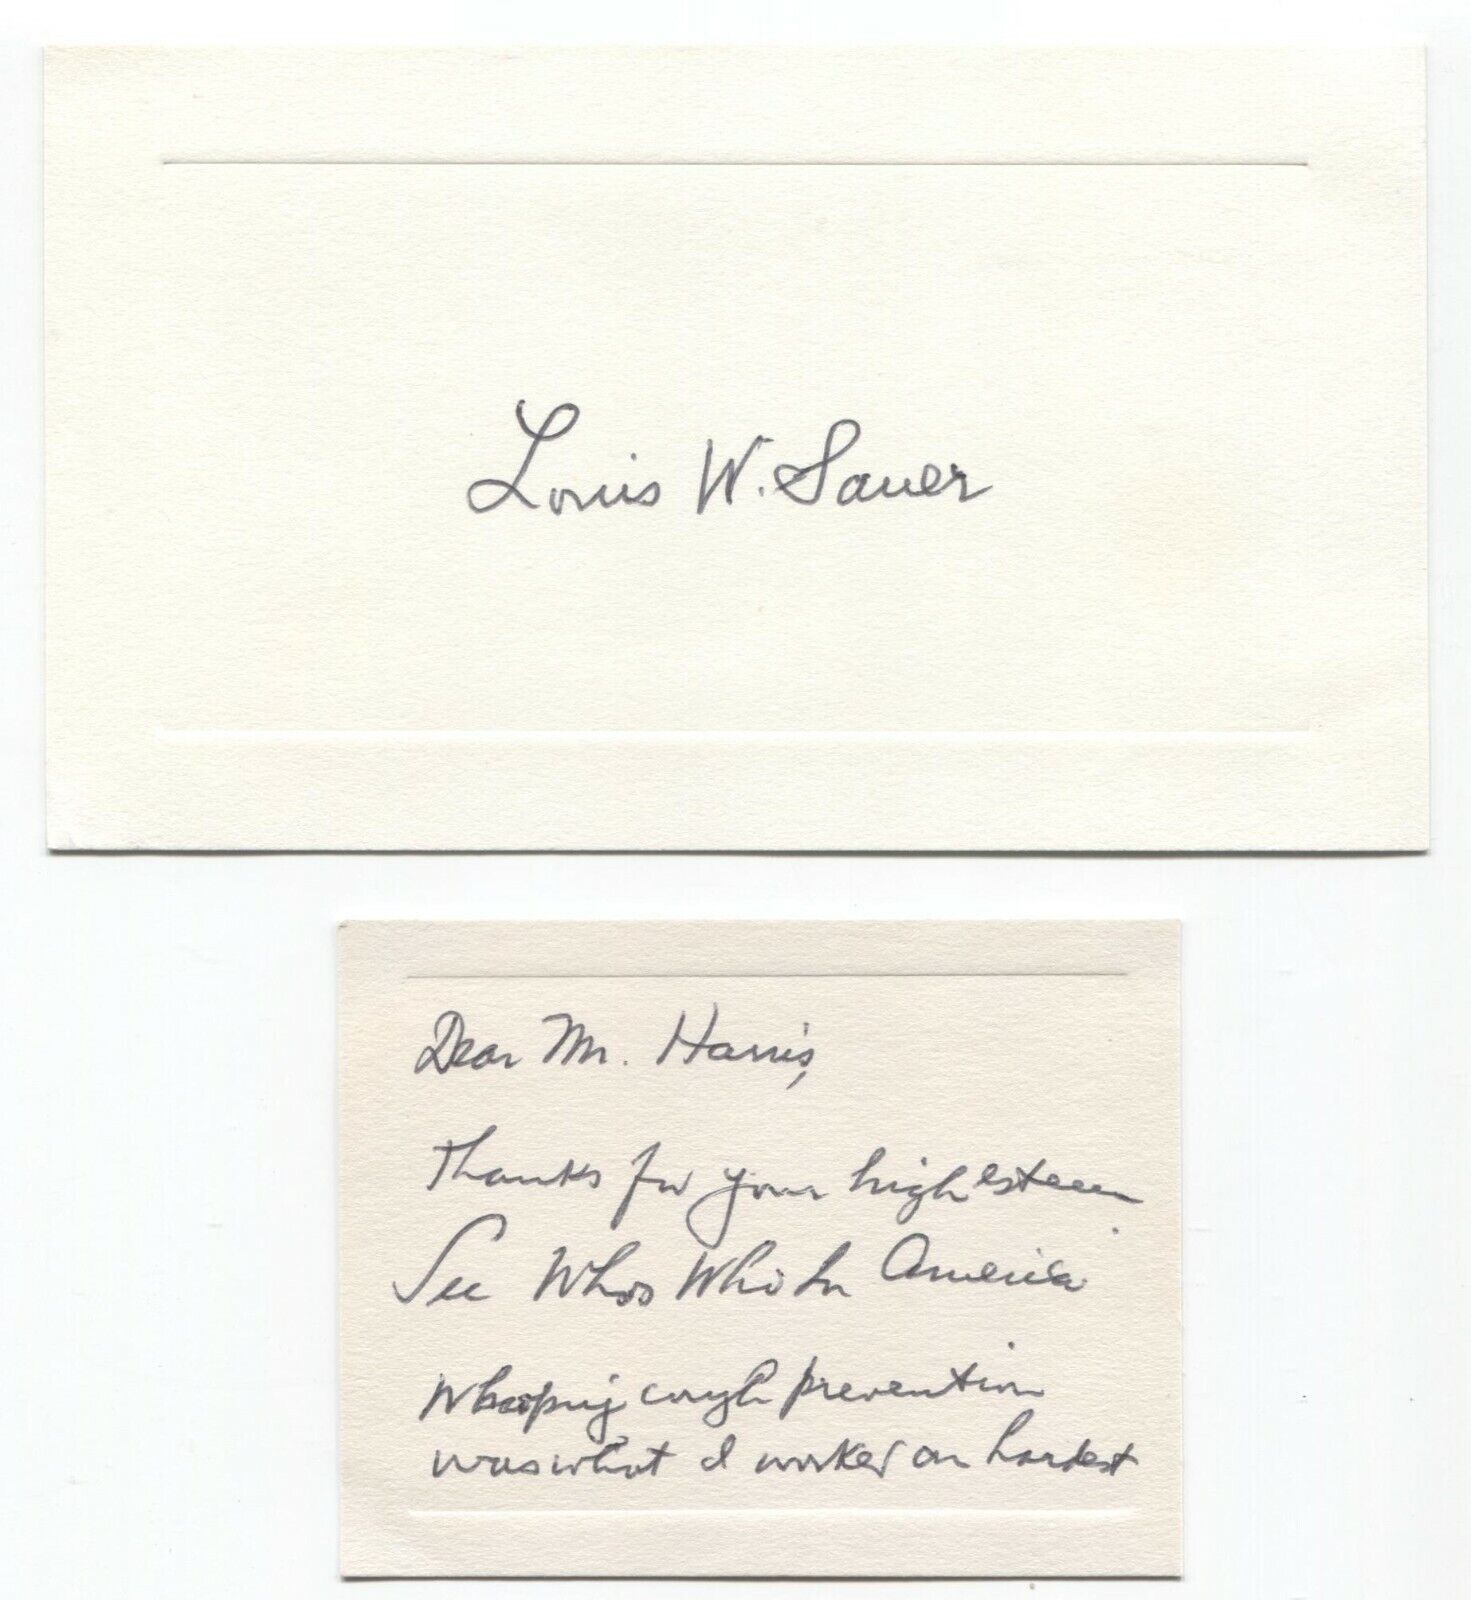 Louis W. Sauer
Dear Mr. Harris,
Thanks for your high esteem
See Whos Who In America
Whooping cough prevention
was what I worked on hardest